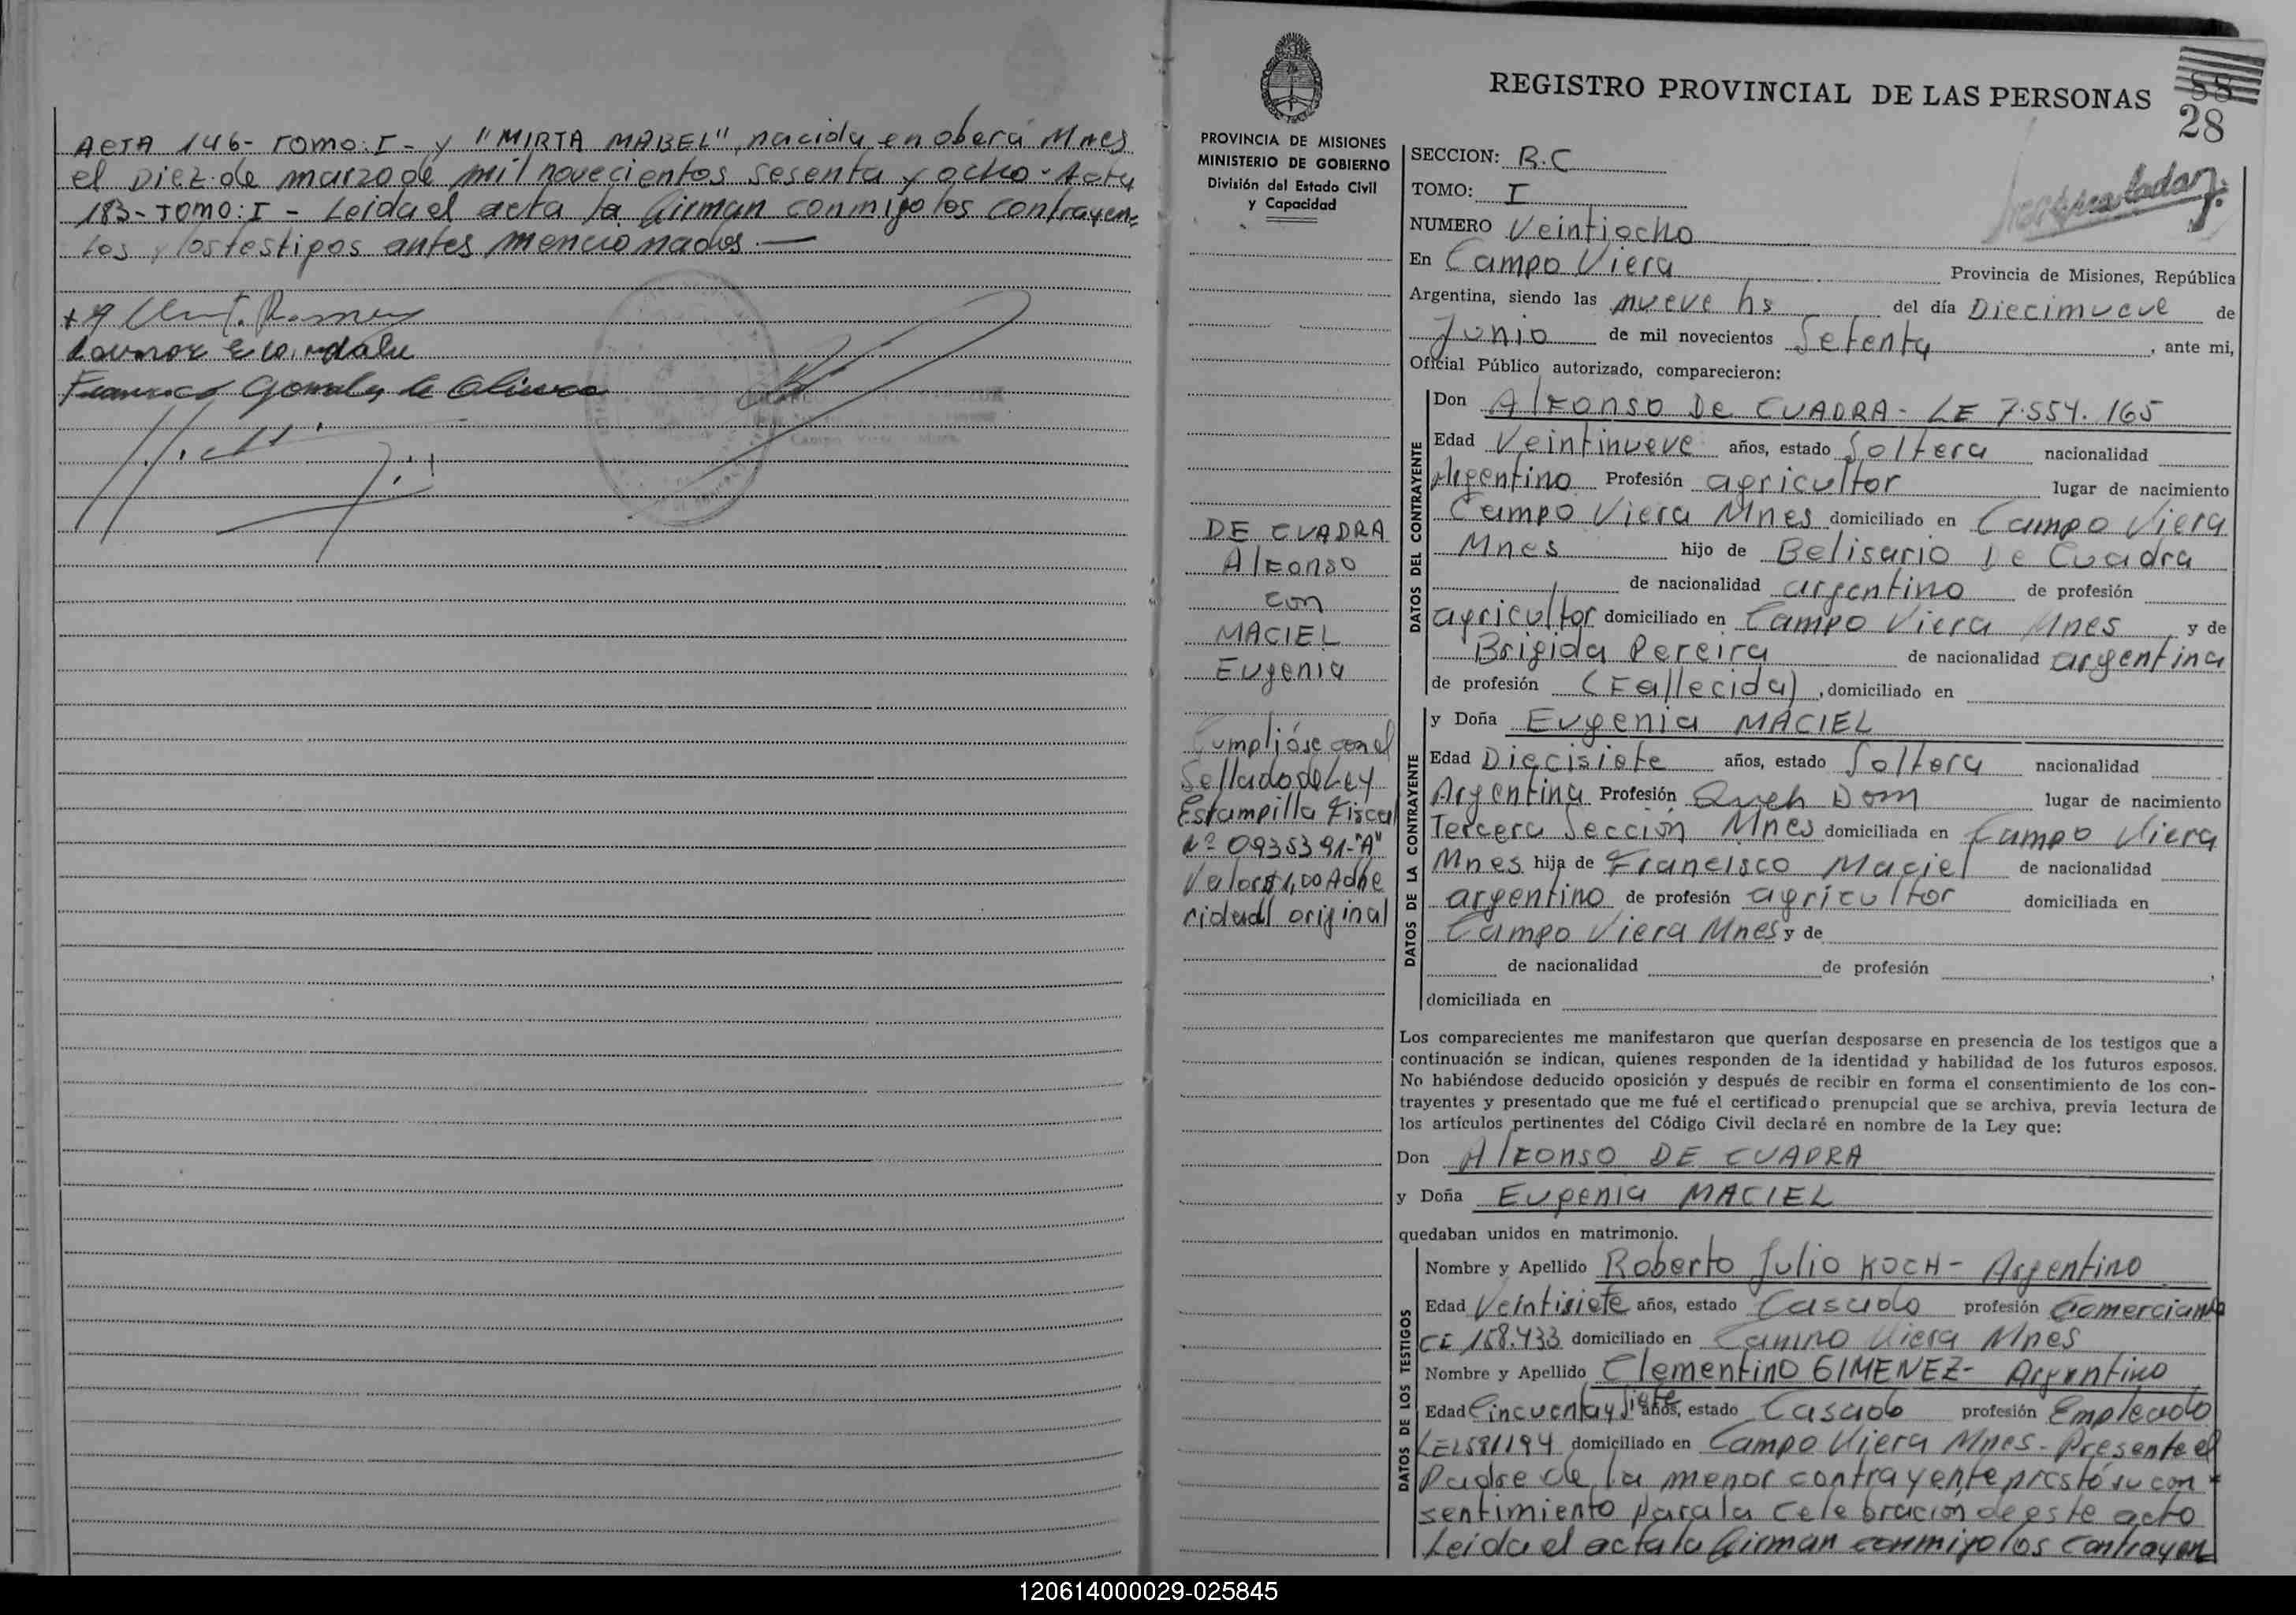 ACTA 146- Tomo: I - y "MIRTA MABEL", nacida en oberá Mnes
el Diez de marzo de mil novecientos sesenta y ocho - Acta
183- Tomo: I - Leida el acta la firman conmigo los contrayen-
tes y los testigos antes mencionados.—
Francisco Gonzalez de Olivera
REGISTRO PROVINCIAL DE LAS PERSONAS
88
28
PROVINCIA DE MISIONES
MINISTERIO DE GOBIERNO
División del Estado Civil
y Capacidad
SECCION: R.C
TOMO: I
NUMERO Veintiocho
En Campo Viera Provincia de Misiones, República
Argentina, siendo las nueve hs del día Diecinueve de
Junio de mil novecientos Setenta, ante mi,
Oficial Público autorizado, comparecieron:
DATOS DEL CONTRAYENTE
Don Alfonso De CUADRA - LE 7.554.165
Edad Veintinueve años, estado Soltera nacionalidad
Argentino Profesión agricultor lugar de nacimiento
Campo Viera Mnes domiciliado en Campo Viera
Mnes hijo de Belisario De Cuadra
de nacionalidad argentino de profesión
agricultor domiciliado en Campo Viera Mnes, y de
Brigida Pereira de nacionalidad argentina
de profesión (Fallecida), domiciliado en
DE CUADRA
Alfonso
con
MACIEL
Eugenia
Cumplióse con el
Sellado de Ley
Estampilla Fiscal
Nº 0935391-"A"
Valor $ 1,00 Adhe
rida al original
DATOS DE LA CONTRAYENTE
y Doña Eugenia MACIEL
Edad Diecisiete años, estado Soltera nacionalidad
Argentina Profesión Queh Dom lugar de nacimiento
Tercera Sección Mnes domiciliada en Campo Viera
Mnes hija de Francisco Maciel de nacionalidad
argentino de profesión agricultor domiciliada en
Campo Viera Mnes y de
de nacionalidad de profesión ,
domiciliada en
Los comparecientes me manifestaron que querían desposarse en presencia de los testigos que a
continuación se indican, quienes responden de la identidad y habilidad de los futuros esposos.
No habiéndose deducido oposición y después de recibir en forma el consentimiento de los con-
trayentes y presentado que me fué el certificado prenupcial que se archiva, previa lectura de
los artículos pertinentes del Código Civil declaré en nombre de la Ley que:
Don Alfonso DE CUADRA
y Doña Eugenia MACIEL
quedaban unidos en matrimonio.
DATOS DE LOS TESTIGOS
Nombre y Apellido Roberto Julio KOCH - Argentino
Edad Veintisiete años, estado Casado profesión Comerciante
CI 158.433 domiciliado en Campo Viera Mnes
Nombre y Apellido Clementino GIMENEZ - Argentino
Edad Cincuenta y Siete años, estado Casado profesión Empleado
LE 2581194 domiciliado en Campo Viera Mnes - Presente el
Padre de la menor contrayente prestó su con
sentimiento para la celebración de este acto
Leida el acta la firman conmigo los contrayen
120614000029-025845